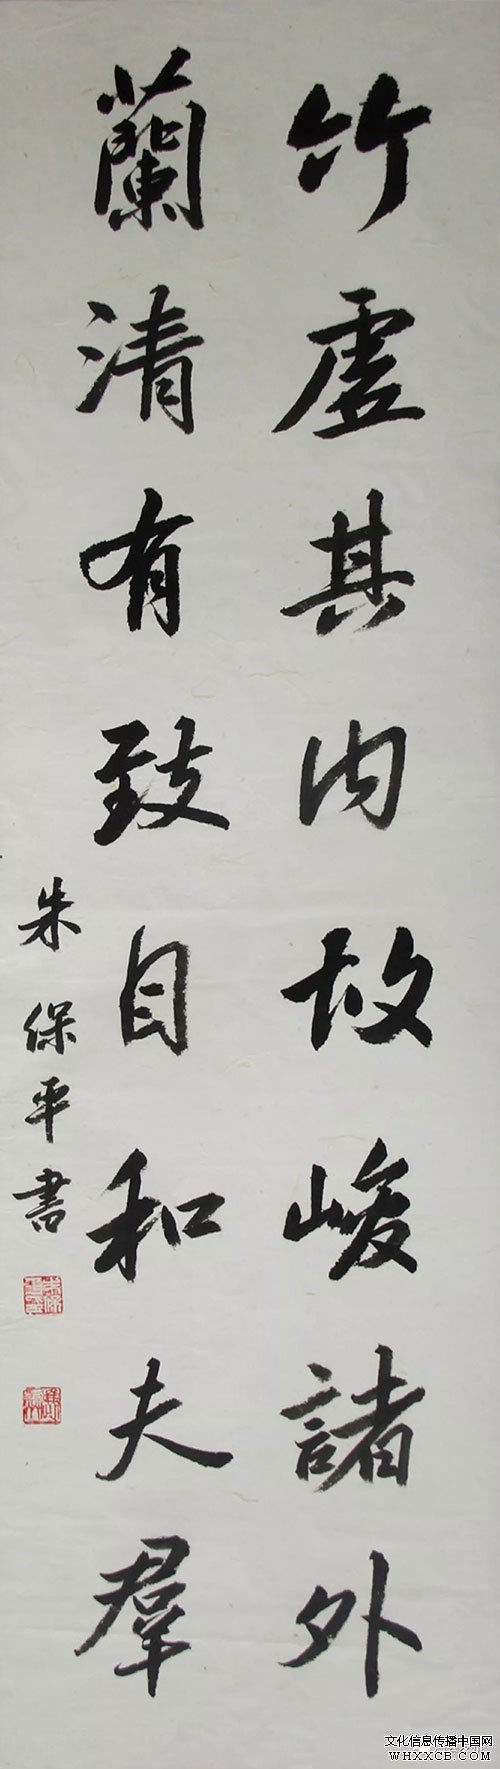 竹虛其内故峻諸外
蘭清有致自和夫羣
朱保平書
文化信息传播中国网
WHXXCB.COM